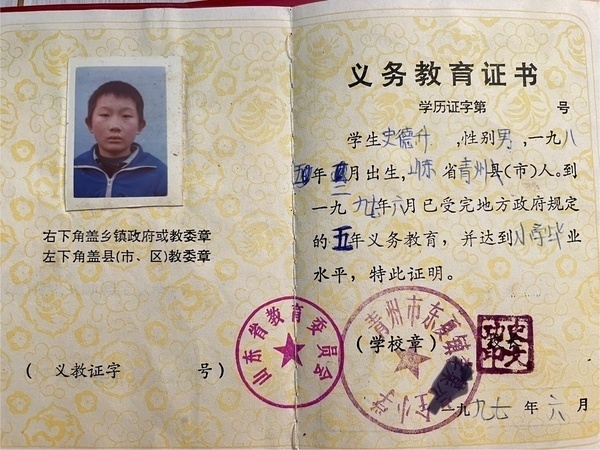 右下角盖乡镇政府或教委章
左下角盖县(市、区)教委章
( 义教证字 号)
山东省教育委员会
义务教育证书
学历证字第 号
学生史德升,性别男,一九八
年 月出生,山东省青州县(市)人。到
一九九七年六月已受完地方政府规定
的五年义务教育,并达到小学毕业
水平,特此证明。
(学校章)
青州市东夏镇 小学
一九九七年六月